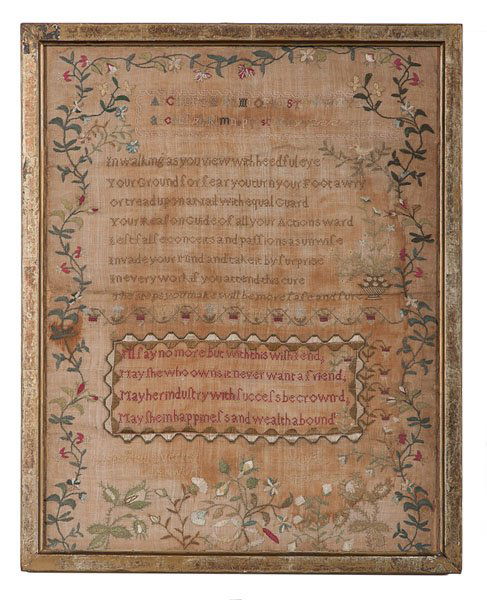 In walking as you view with heedful eye
Your Ground for fear you turn your Foot awry
or tread upon a nail with equal Guard
Your Reason Guide of all your Actions ward
Lest false conceits and passions as unwise
Invade your Mind and take it by surprise
In every work if you attend this cure
The steps you make will be more safe and sure
I'll say no more but with this wish I end,
May she who owns it never want a friend,
May her industry with success be crownd,
May she in happiness and wealth abound